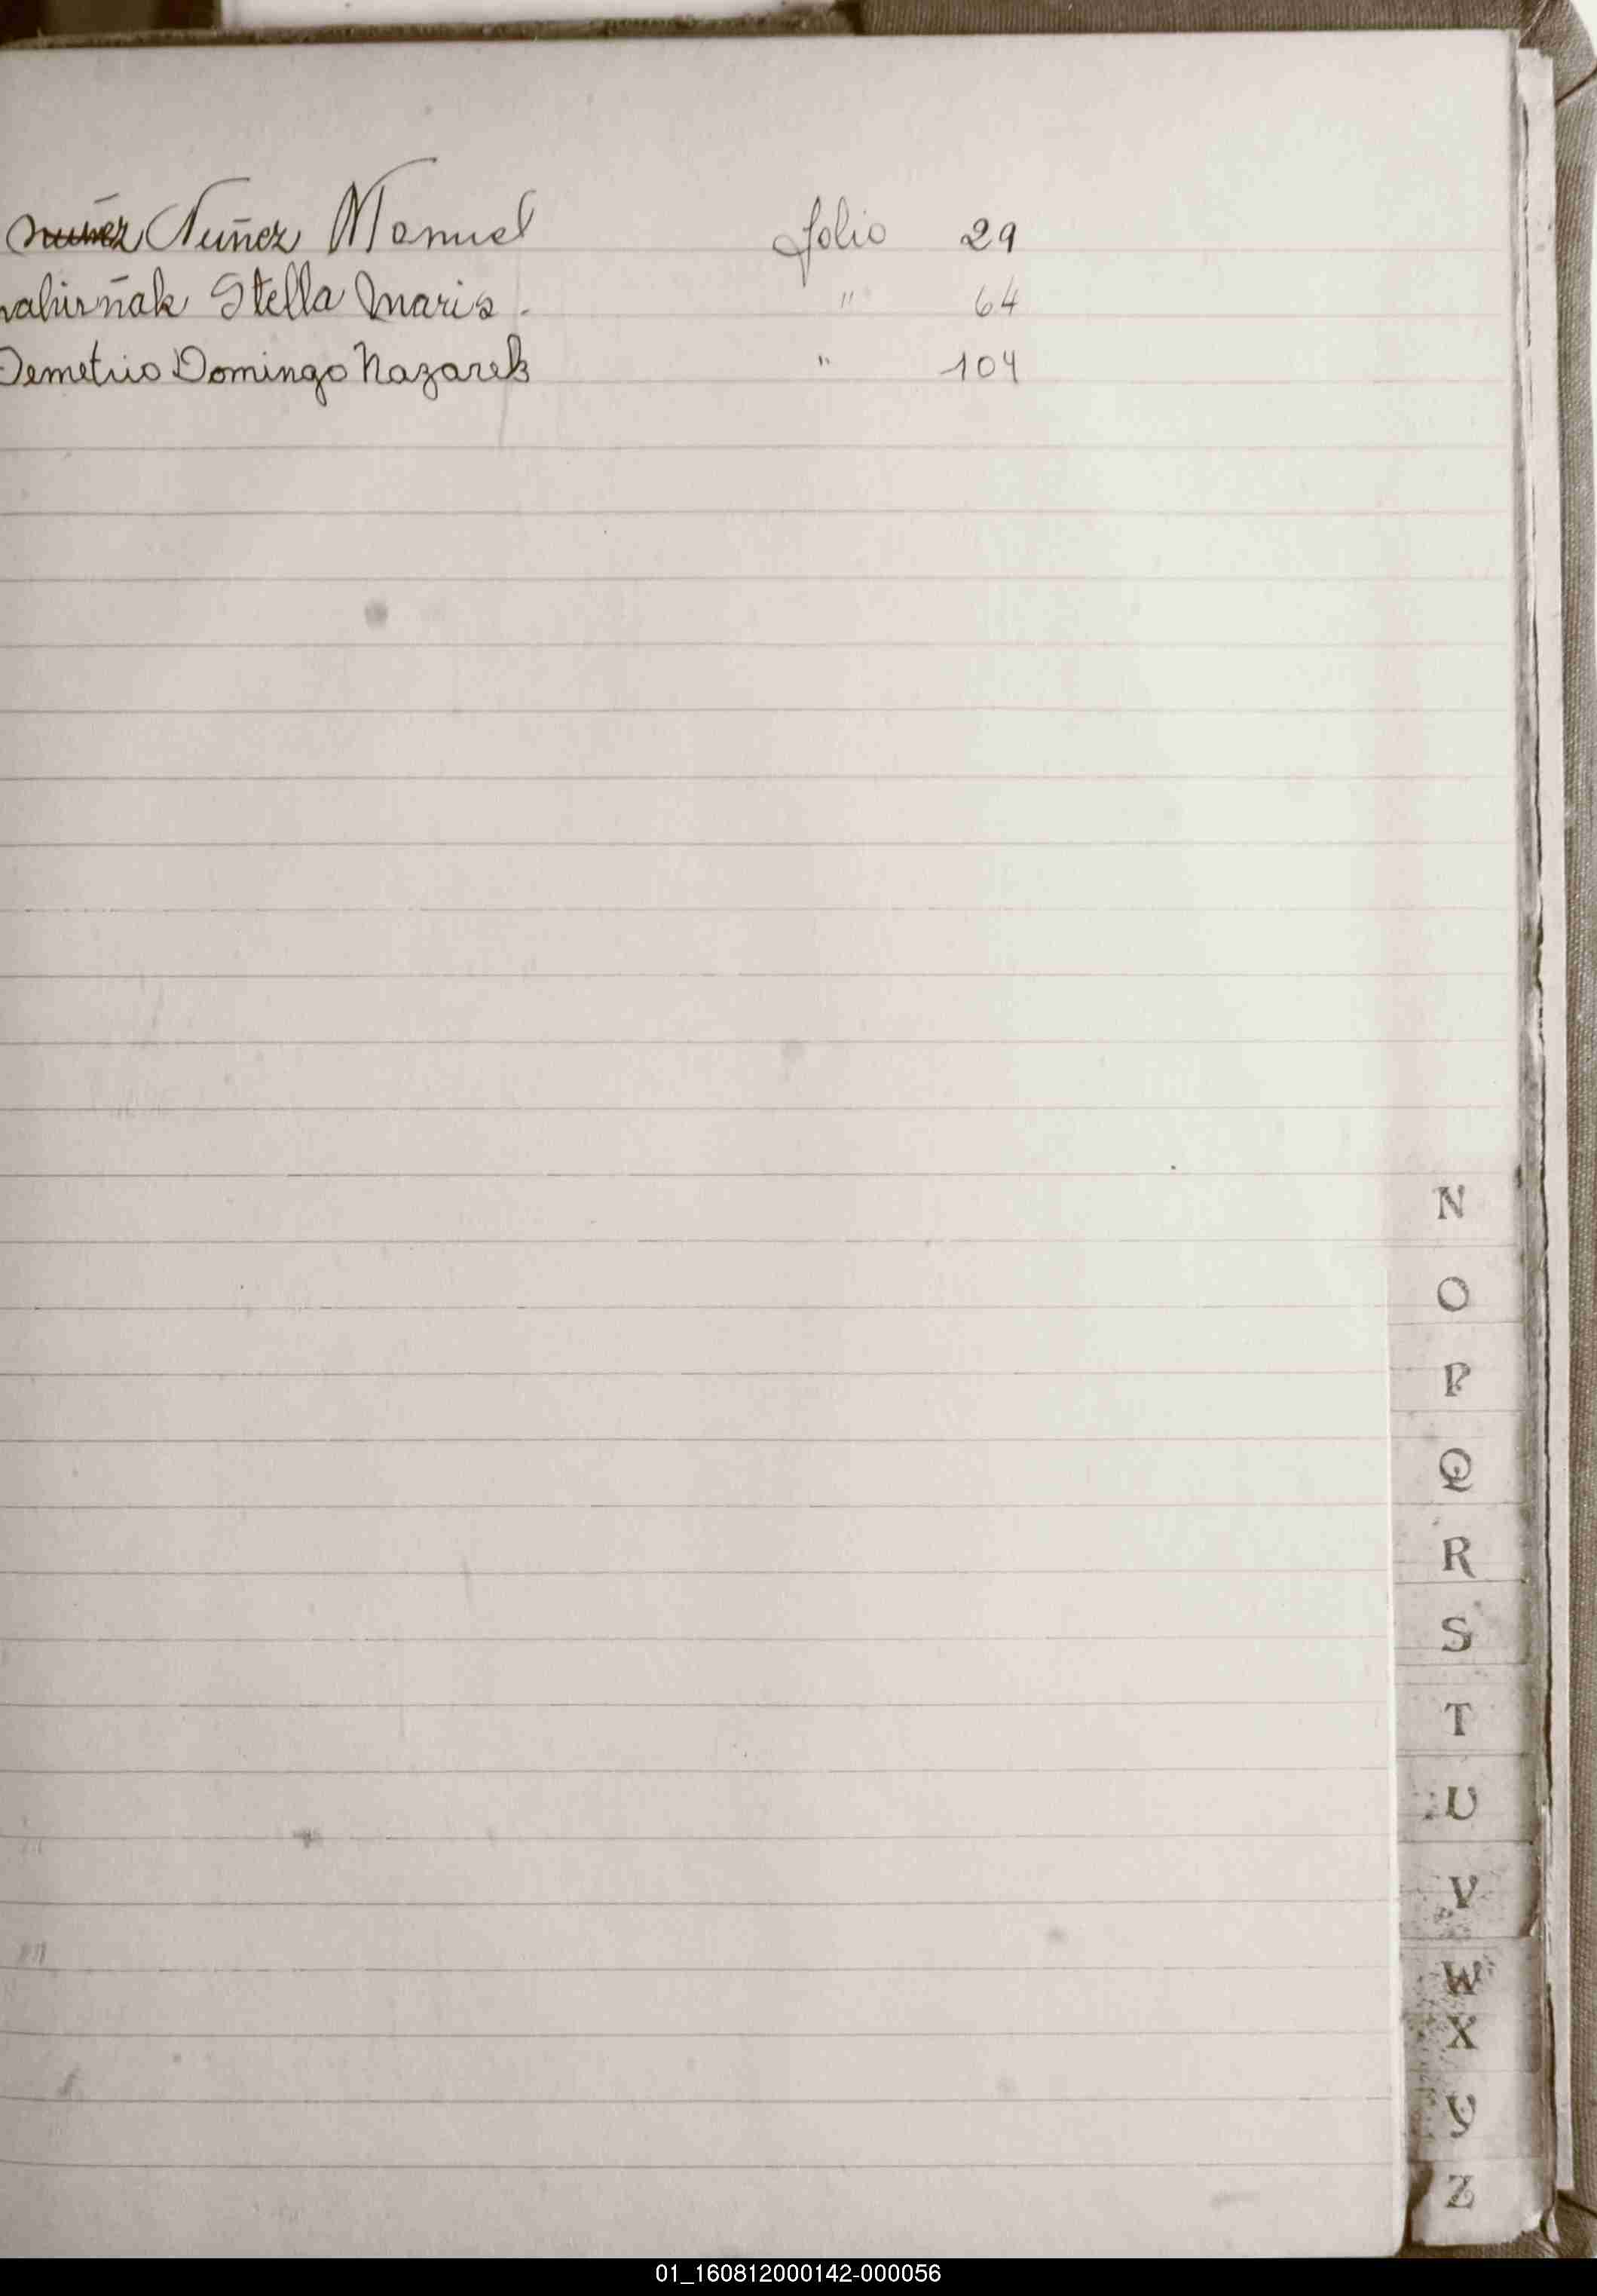 Nuñez Manuel folio 29
Stella Maris. " 64
Demetrio Domingo Nazarek " 104
N
O
P
Q
R
S
T
U
V
W
X
Y
Z
01_160812000142-000056